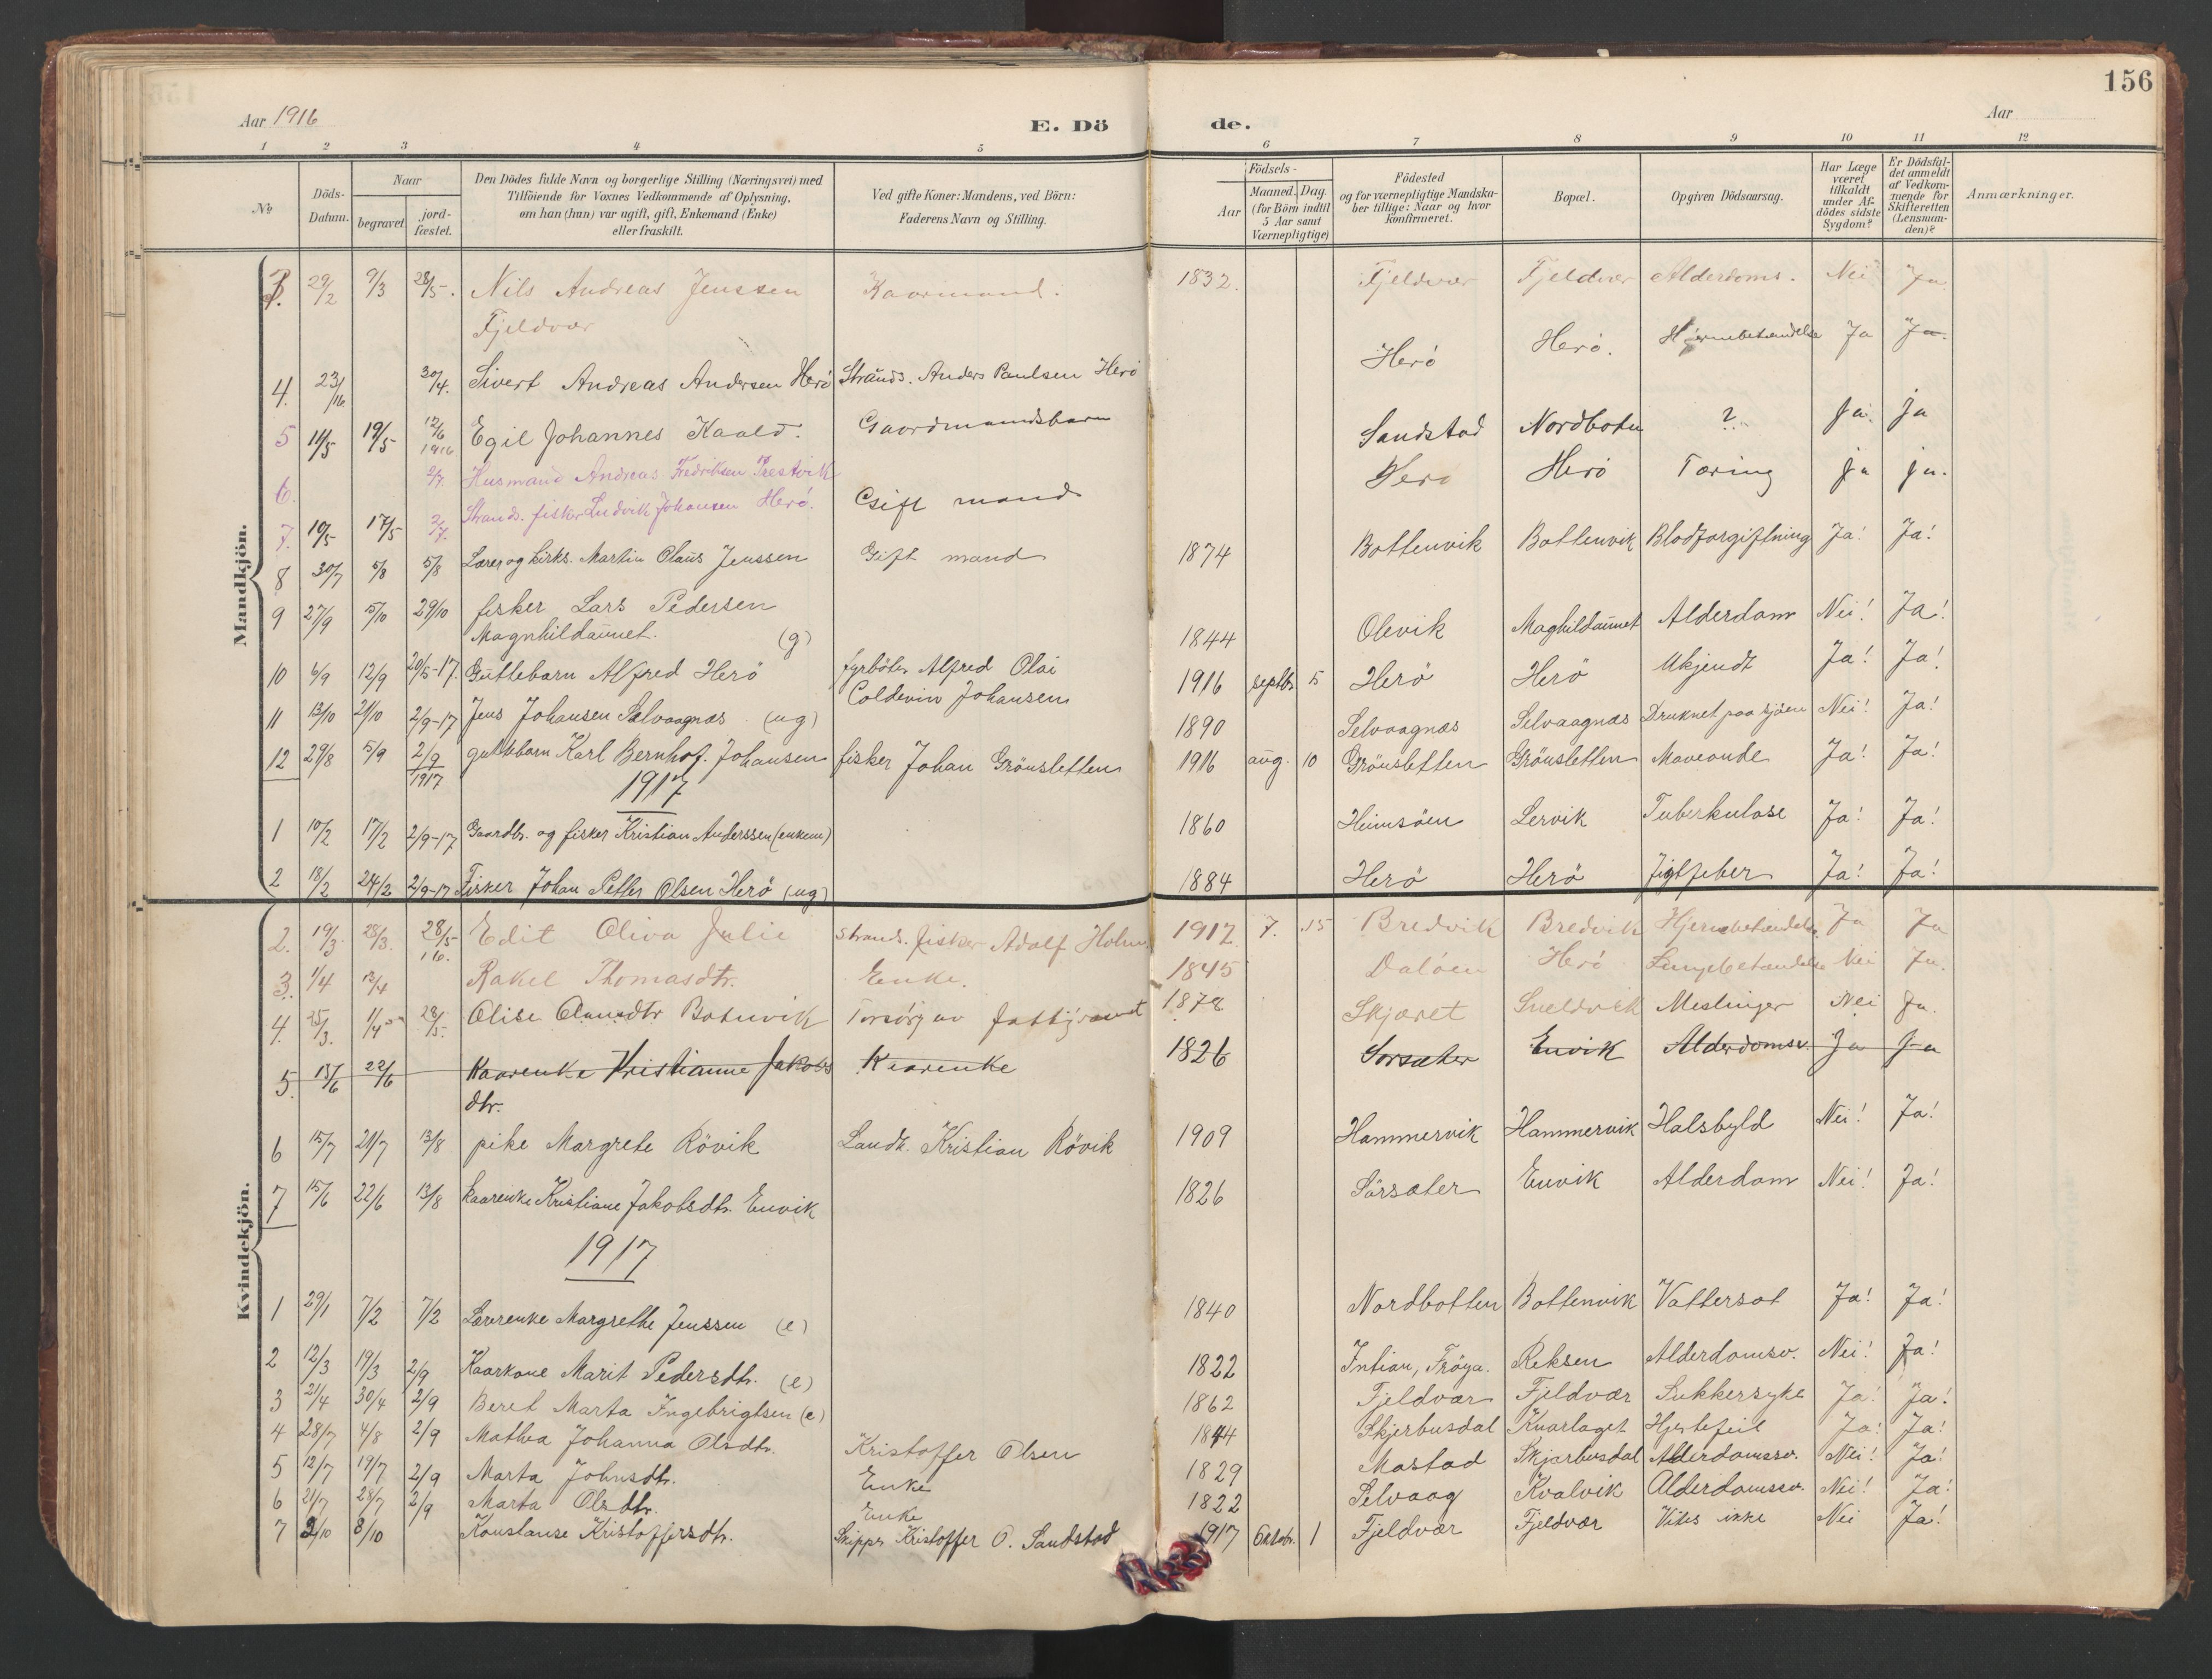 156
Aar 1916
E. Dö de.
Aar
1 2 3 4 5 6 7 8 9 10 11 12
No
Döds-Datum.
Naar
begravet
jord-fæstet.
Den Dödes fulde Navn og borgerlige Stilling (Næringsvei) med
Tilföiende for Voxnes Vedkommende af Oplysning,
om han (hun) var ugift, gift, Enkemand (Enke)
eller fraskilt.
Ved gifte Koner: Mandens, ved Börn:
Faderens Navn og Stilling.
Födsels-
Aar
Maaned. Dag.
(for Börn indtil
5 Aar samt
Værnepligtige)
Födested
og for værnepligtige Mandska-
ber tillige: Naar og hvor
konfirmeret.
Bopæl.
Opgiven Dödsaarsag.
Har Læge
været
tilkaldt
under Af-
dödes sidste
Sygdom?
Er Dödsfal-
det anmeldt
af Vedkom-
mende for
Skifteretten
(Lensman-
den)?
Anmærkninger.
Mandkjön.
29/2 9/3 28/5. Nils Andreas Jenssen Kaarmand. 1832. Fjeldvær Fjeldvær Alderdoms. Nei Ja
Fjeldvær
4. 23/16 30/4. Sivert Andreas Andersen Herö Strands. Anders Paulsen Herö Herö Herö. Hjernebetændelse Ja Ja.
5 11/5 19/5 12/6 1916 Egil Johannes Kaald. Gaardmandsbarn Sandstad Nordbotn ? Ja. Ja
6. 2/7. Husmand Andreas Fredriksen Prestvik Herö Herö Tæring ja ja.
7. 10/5 17/5 2/7. Strands. fisker Ludvik Johansen Herö. Gift mand
8 30/7 5/8 5/8 Lærer og kirks. Martin Olaus Jenssen Gift mand 1874 Bottenvik Bottenvik Blodforgiftning Ja! Ja!
9 27/9 15/10 29/10 fisker Lars Pedersen 1844 Olevik Maghildaunet Alderdom Nei! Ja!
Magnhildaunet. (g)
10 6/9 12/9 20/5-17. Guttebarn Alfred Herö fyrböter Alfred Olai 1916 septbr 5 Herö Herö Ukjendt Ja! Ja!
Coldevin Johansen
11 13/10 21/10 2/9-17 Jens Johansen Selvaagnæs (ug) 1890 Selvaagnæs Selvaagnæs Druknet paa sjöen Nei! Ja!
12 29/8 5/9 2/9 1917 guttebarn Karl Bernhof. Johansen fisker Johan Grönsletten 1916 aug. 10 Grönsletten Grönsletten Maveonde Ja! Ja!
1917
1 10/2 17/2 2/9-17 Gaardbr. og fisker Kristian Anderssen (enkem) 1860 Heimsöen Lervik Tuberkulose Ja! Ja!
2 18/2 24/2 2/9-17 Fisker Johan Petter Olsen Herö (ug) 1884 Herö Herö Figtfeber Ja! Ja!
Kvindekjön.
2. 19/3 28/3. 28/5 16. Edit Oliva Julie strands. fisker Adolf Holm. 1912 7. 15 Bredvik Bredvik Hjernebetændelse Ja Ja
3. 1/4 13/4 Rakel Thomasdtr. Enke. 1845 Daløen Herö Lungebetændelse Nei Ja.
4. 25/3. 1/4 28/5. Olise Botnvik Forsörg av fattigvæsnet 1878 Skjæret Sneldvik Meslinger Nei Ja.
5. 15/6 22/6 Kaarenke Kristianne Jakobs Kaarenke 1826 Sorsæter Envik Alderdomsv. Ja Ja
dtr.
6 15/7 21/7 13/8 pike Margrete Rövik Landh. Kristian Rövik 1909 Hammervik Hammervik Halsbyld Nei! Ja!
7 15/6 22/6 13/8 kaarenke Kristiane Jakobsdtr. Envik 1826 Sörsæter Envik Alderdom Nei! Ja!
1917
1 29/1 7/2 7/2 Lærerenke Margrethe Jenssen (e) 1840 Nordbotten Bottenvik Vattersot Ja! Ja!
2 12/3 19/3 2/9 Kaarkone Marit Pedersdtr. (e) 1822 Intian, Fröya. Reksen Alderdomsv. Nei! Ja!
3 21/4 30/4 2/9 Beret Marta Ingebrigtsen (e) 1862 Fjeldvær Fjeldvær Sukkersyke Ja! Ja!
4 28/7 4/8 2/9 Mathea Johanna Olsdtr. Kristoffer Olsen 1844 Skjerbusdal Kvarlaget Hjertefeil Ja! Ja!
5 12/7 19/7 2/9 Marta Johnsdtr. Enke 1829 Mastad Skjærbusdal Alderdomssv. Nei! Ja!
6 21/7 28/7 2/9 Marta Olsdtr. Enke 1822 Selvaag Kvalvik Alderdomssv. Nei! Ja!
7 2/10 8/10 Konstanse Kristoffersdtr. Skipper Kristoffer O. Sandstad 1917 Oktobr. 1 Fjeldvær Fjeldvær Vites ikke Nei Ja!